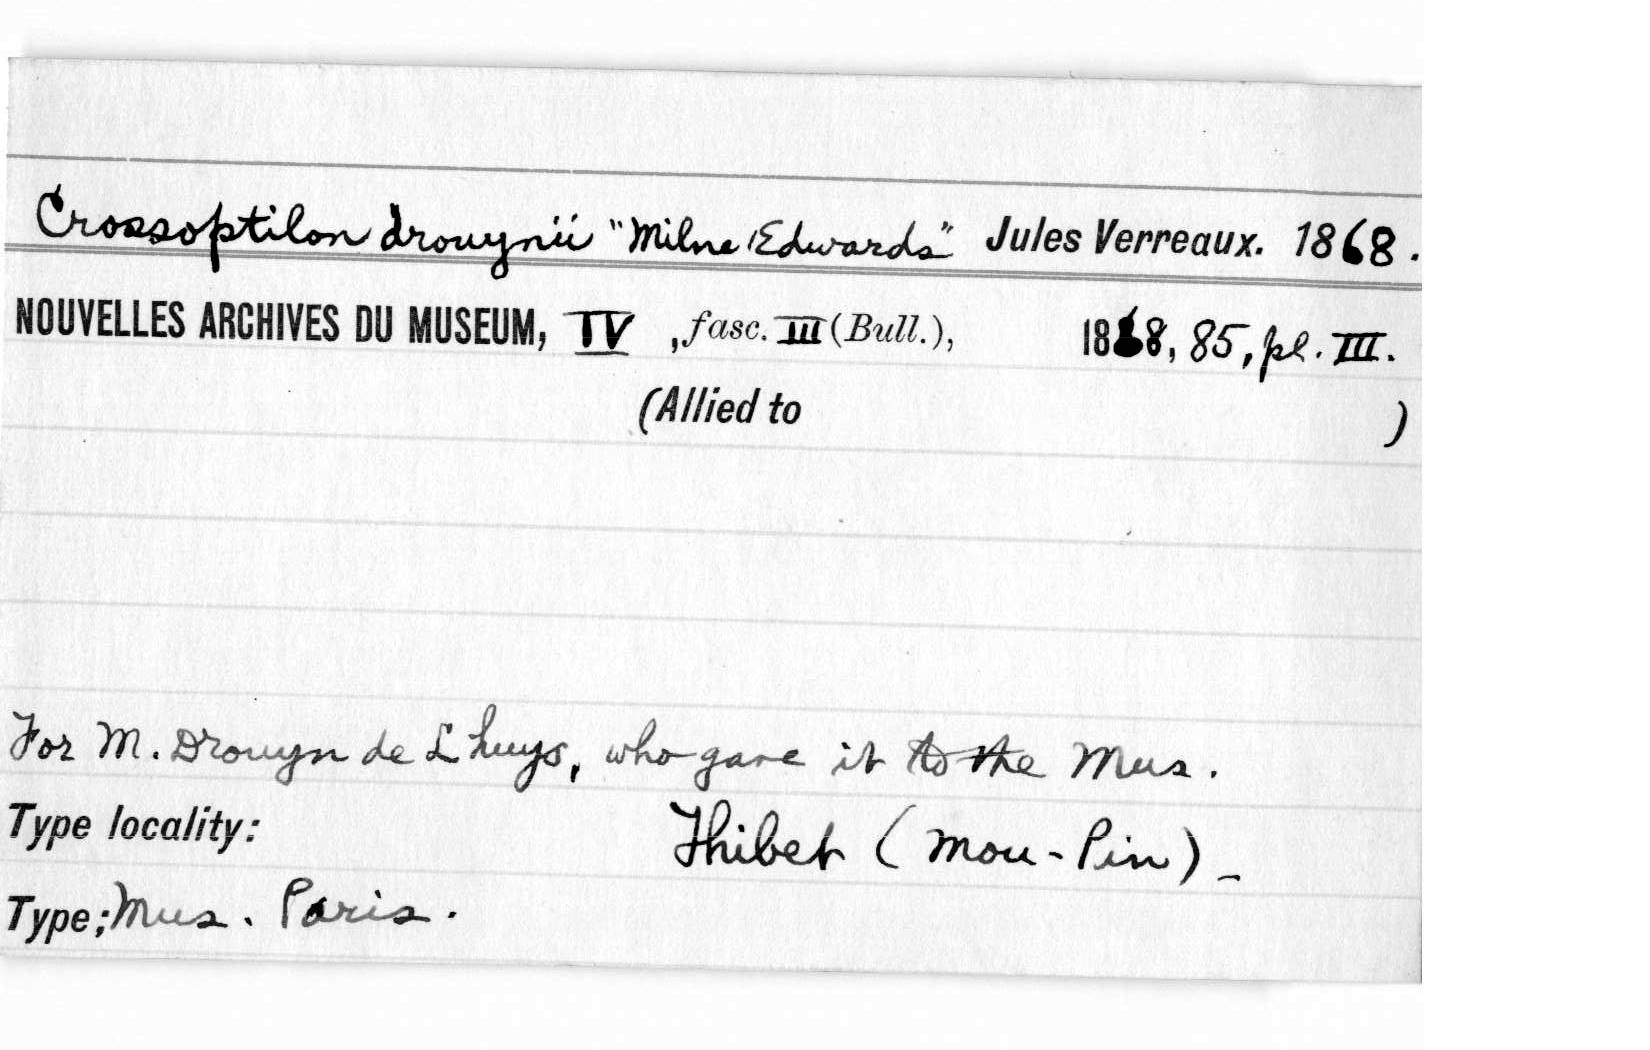 Crossoptilon drouynii "Milne Edwards" Jules Verreaux. 1868.
NOUVELLES ARCHIVES DU MUSEUM, IV, fasc. III (Bull.), 1868, 85, pl. III.
(Allied to )
For M. Drouyn de Lhuys, who gave it to the Mus.
Type locality: Thibet (Mou-Pin)_
Type; Mus. Paris.